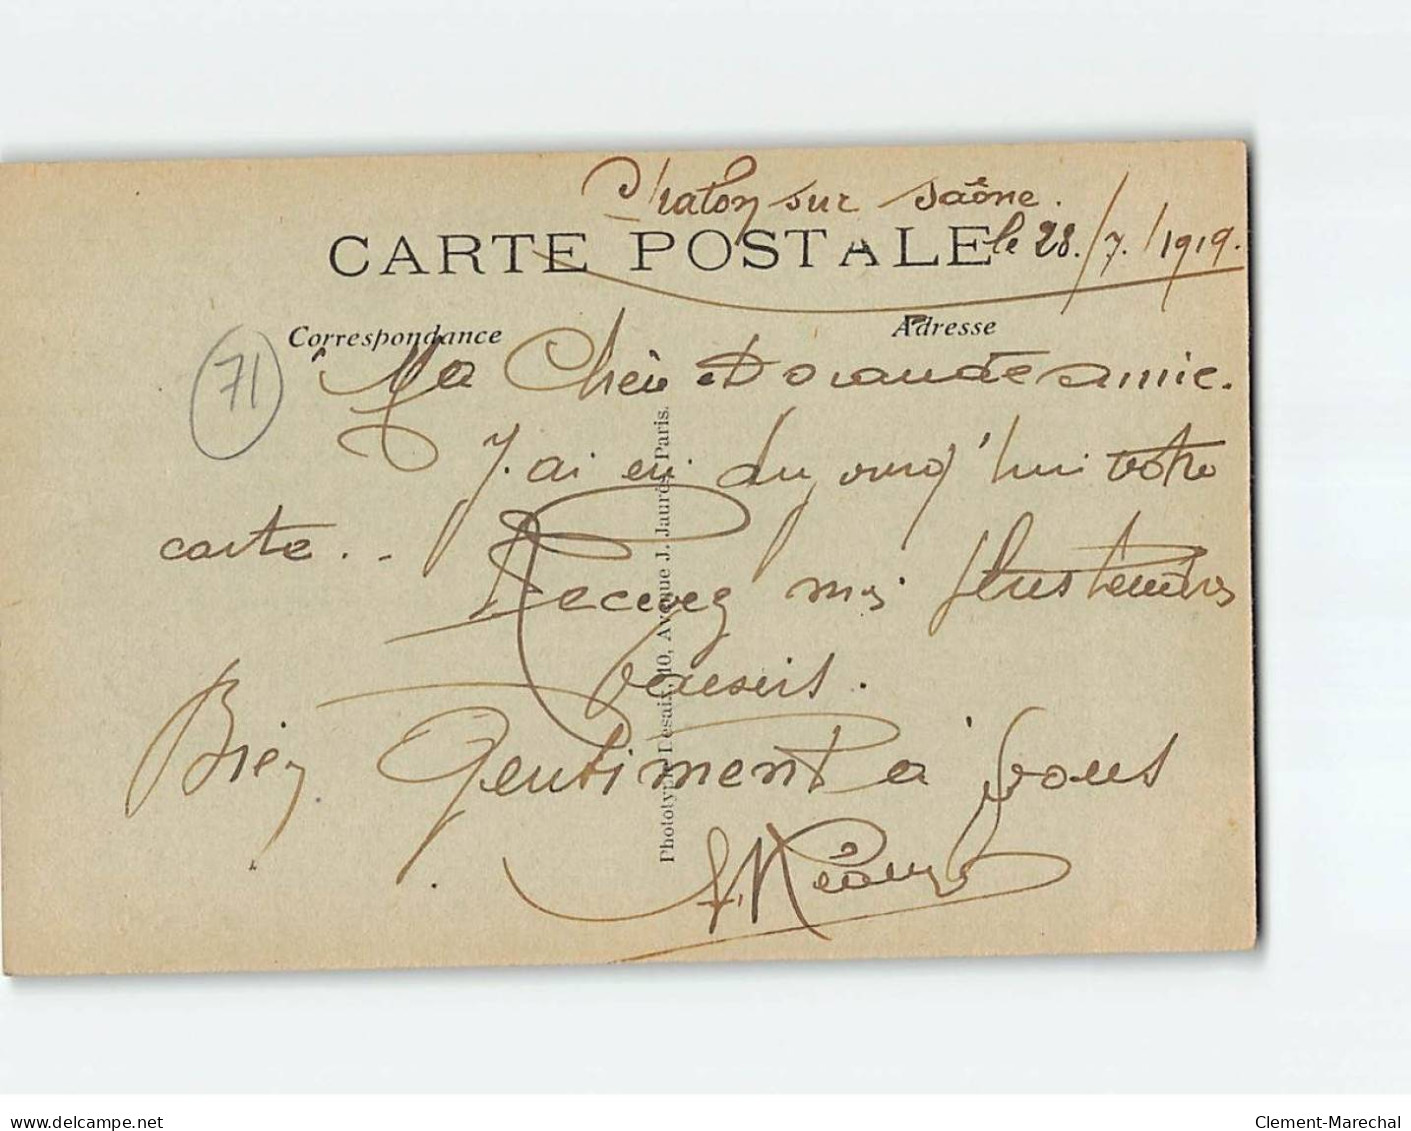 Chalon sur Saône.
CARTE POSTALE le 28./7./1919.
Correspondance
Adresse
71
Ma Chère
amie.
J'ai eu aujourd'hui votre
carte..
Recevez mes plus tendres
baisers.
Bien Gentiment à vous
Phototypie Desaix, 10, Avenue J. Jaurès, Paris.
www.delcampe.net
Clement-Marechal